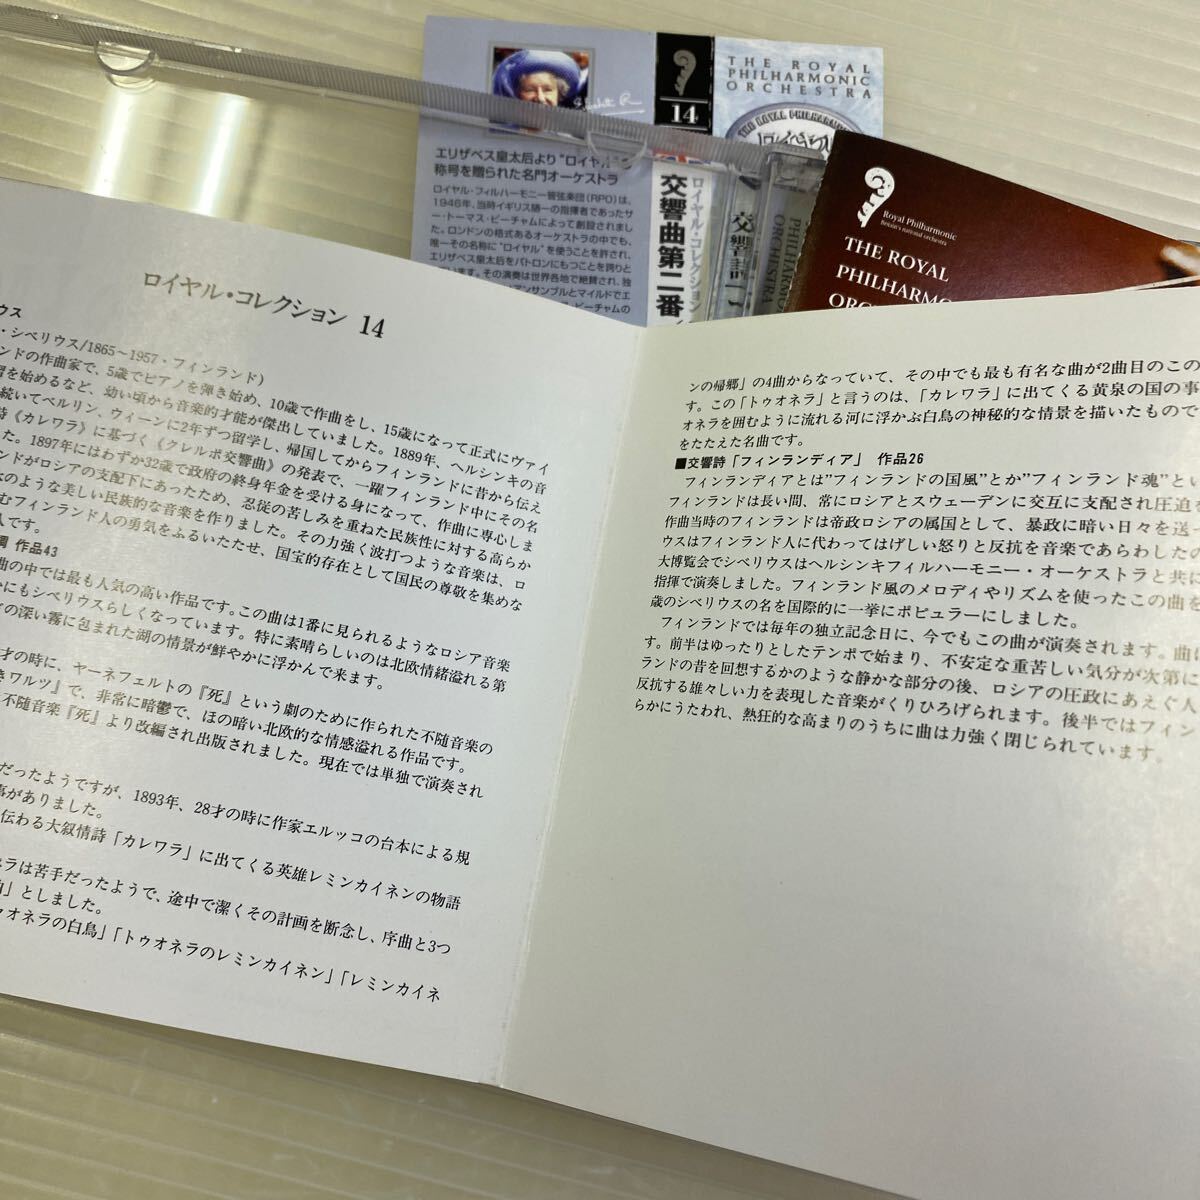 THE ROYAL
PHILHARMONIC
ORCHESTRA
14
エリザベス皇太后より“ロイヤル
称号を贈られた名門オーケストラ
ロイヤル・フィルハーモニー管弦楽団(RPO)は、
1946年、当時イギリス随一の指揮者であったサ
ー・トーマス・ビーチャムによって創設されまし
た。ロンドンの格式あるオーケストラの中でも、
唯一その名称に“ロイヤル”を使うことを許され、
エリザベス皇太后をパトロンにもつことを誇りと
います。その演奏は世界各地で絶賛され、独
アンサンブルとマイルドでエ
ビーチャムの
ロイヤル・コレクション
交響曲第二番
Royal Philharmonic
Britain's national orchestra
THE ROYAL
PHILHARMO
ORC
ロイヤル・コレクション 14
ウス
・シベリウス/1865～1957・フィンランド)
ンドの作曲家で、5歳でピアノを弾き始め、10歳で作曲をし、15歳になって正式にヴァイ
習を始めるなど、幼い頃から音楽的才能が傑出していました。1889年、ヘルシンキの音
続いてベルリン、ウィーンに2年ずつ留学し、帰国してからフィンランドに昔から伝え
詩《カレワラ》に基づく《クレルボ交響曲》の発表で、一躍フィンランド中にその名
た。1897年にはわずか32歳で政府の終身年金を受ける身になって、作曲に専心しま
ンドがロシアの支配下にあったため、忍従の苦しみを重ねた民族性に対する高らか
のような美しい民族的な音楽を作りました。その力強く波打つような音楽は、ロ
むフィンランド人の勇気をふるいたたせ、国宝的存在として国民の尊敬を集めな
人です。
調 作品43
曲の中では最も人気の高い作品です。この曲は1番に見られるようなロシア音楽
にもシベリウスらしくなっています。特に素晴らしいのは北欧情緒溢れる第
の深い霧に包まれた湖の情景が鮮やかに浮かんで来ます。
才の時に、ヤーネフェルトの『死』という劇のために作られた不随音楽の
きワルツ』で、非常に暗鬱で、ほの暗い北欧的な情感溢れる作品です。
不随音楽『死』より改編され出版されました。現在では単独で演奏され
だったようですが、1893年、28才の時に作家エルッコの台本による規
事がありました。
伝わる大叙情詩「カレワラ」に出てくる英雄レミンカイネンの物語
ラは苦手だったようで、途中で潔くその計画を断念し、序曲と3つ
」としました。
ゥオネラの白鳥」「トゥオネラのレミンカイネン」「レミンカイネ
ンの帰郷」の4曲からなっていて、その中でも最も有名な曲が2曲目のこの
す。この「トゥオネラ」と言うのは、「カレワラ」に出てくる黄泉の国の事
オネラを囲むように流れる河に浮かぶ白鳥の神秘的な情景を描いたもので
をたたえた名曲です。
■交響詩「フィンランディア」 作品26
フィンランディアとは“フィンランドの国風”とか“フィンランド魂”とい
フィンランドは長い間、常にロシアとスウェーデンに交互に支配され圧迫を
作曲当時のフィンランドは帝政ロシアの属国として、暴政に暗い日々を送っ
ウスはフィンランド人に代わってはげしい怒りと反抗を音楽であらわしたの
大博覧会でシベリウスはヘルシンキフィルハーモニー・オーケストラと共に
指揮で演奏しました。フィンランド風のメロディやリズムを使ったこの曲を
歳のシベリウスの名を国際的に一挙にポピュラーにしました。
フィンランドでは毎年の独立記念日に、今でもこの曲が演奏されます。曲は
す。前半はゆったりとしたテンポで始まり、不安定な重苦しい気分が次第に
ランドの昔を回想するかのような静かな部分の後、ロシアの圧政にあえぐ人
反抗する雄々しい力を表現した音楽がくりひろげられます。後半ではフィン
らかにうたわれ、熱狂的な高まりのうちに曲は力強く閉じられています。